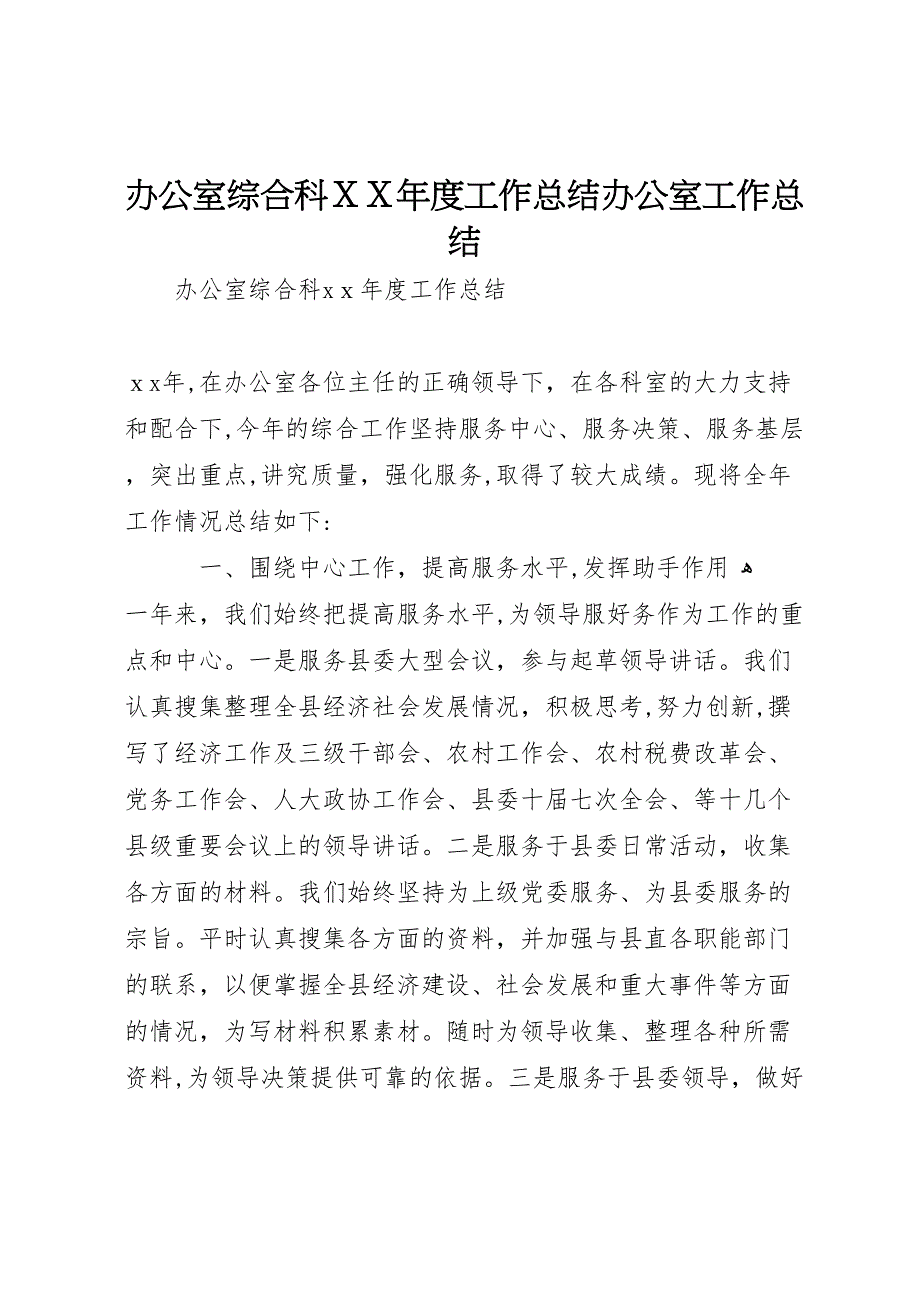 办公室综合科ＸＸ年度工作总结办公室工作总
结
办公室综合科xｘ年度工作总结
ｘx年,在办公室各位主任的正确领导下，在各科室的大力支持
和配合下,今年的综合工作坚持服务中心、服务决策、服务基层
，突出重点,讲究质量，强化服务,取得了较大成绩。现将全年
工作情况总结如下:
一、围绕中心工作，提高服务水平,发挥助手作用 ﻫ
一年来，我们始终把提高服务水平,为领导服好务作为工作的重
点和中心。一是服务县委大型会议，参与起草领导讲话。我们
认真搜集整理全县经济社会发展情况，积极思考,努力创新,撰
写了经济工作及三级干部会、农村工作会、农村税费改革会、
党务工作会、人大政协工作会、县委十届七次全会、等十几个
县级重要会议上的领导讲话。二是服务于县委日常活动，收集
各方面的材料。我们始终坚持为上级党委服务、为县委服务的
宗旨。平时认真搜集各方面的资料，并加强与县直各职能部门
的联系，以便掌握全县经济建设、社会发展和重大事件等方面
的情况，为写材料积累素材。随时为领导收集、整理各种所需
资料,为领导决策提供可靠的依据。三是服务于县委领导，做好